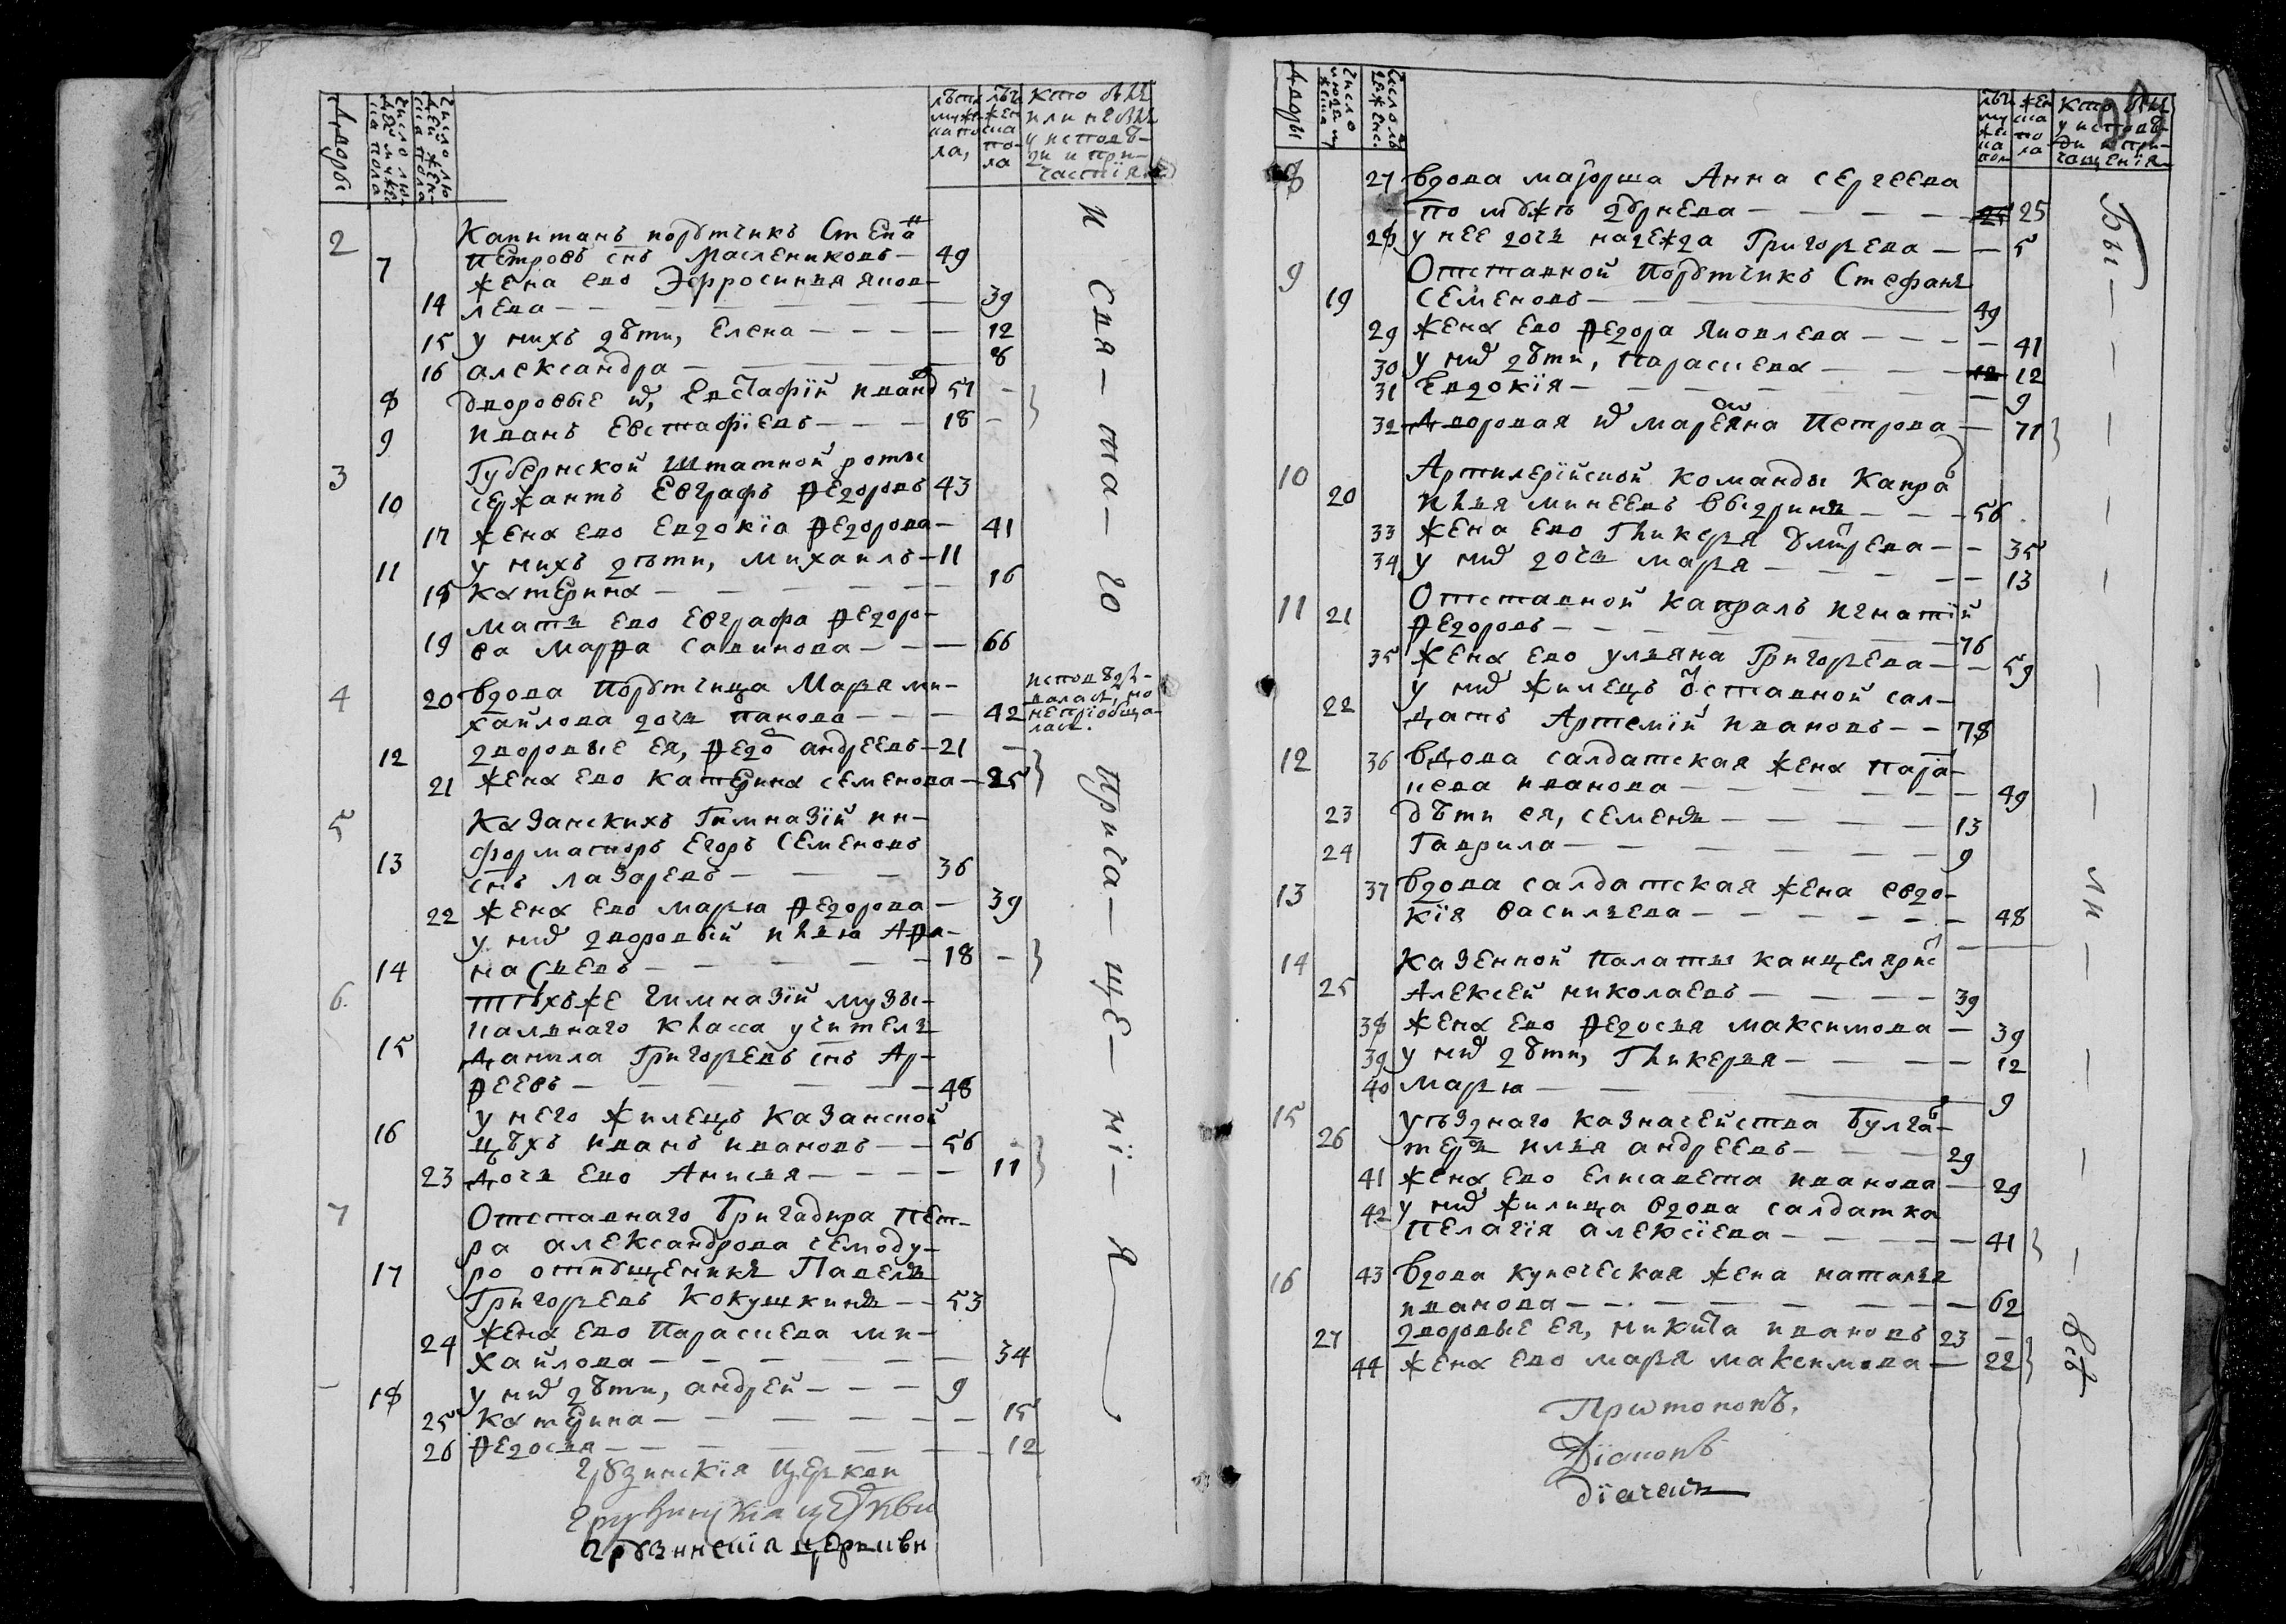 Дворы
Число людей мужеска пола
Число людей женска пола
лѣта мужеска пола,
лѣта женска пола
кто были или небыли у исповѣди и причастия
2
Капитанъ порутчикъ Степа
7 Петровъ снъ Маслениковъ — 49
жена ево Эфросинья Яков-
14 лева — 39
15 у нихъ дѣти, Елена — 12
16 александра — 8
8 дворовые ихъ, Евстафій ивано 51 —
9 иванъ Евстафіевъ — 18 —
3
Губернской штатной роты
10 сержантъ Евграфъ Федоровъ 43
17 жена ево Евдокіа Федорова — 41
11 у нихъ дѣти, михаилъ — 11
18 катерина — 16
мать ево Евграфа Федоро-
19 ва марфа савинова — 66
4 20 вдова порутчица Марья ми-
хаилова дочь панова — 42
исповѣды-
валась, но
непріобща-
лась.
12 дворовые ея, Федо андреевъ — 21 —
21 жена ево катерина семенова — 25
5
Казанскихъ Гимназій ин-
13 форматоръ Егоръ Семеновъ
снъ лазаревъ — 36
22 жена ево марья Федорова — 39
у них дворовый илья Афа-
14 насьевъ — 18 —
6
тѣхъже гимназій музы-
кальнаго класса учитель
15 Данила Григорьевъ снъ Ар-
феевъ — 48
у него жилецъ казанской
16 цѣхъ иванъ ивановъ — 56
23 Дочь ево Анисья — 11
7
Отставнаго Бригадира пет-
ра александрова
17 отпущеникъ Павелъ
Григорьевъ кокушкинъ — 53
24 жена ево Параскева ми-
хаилова — 34
18 у них дѣти, андрей — 9
25 катерина — 15
26 Федосья — 12
и ся — на — го прича — ще — ні — я
грузинскія церкви
грузинскія церкви
грузинскія церкви
Дворы
8 27 вдова маіорша Анна сергеева
по мужѣ — 25
28 у нее дочь надежда Григорьева — 5
9
Отставной порутчикъ Стефанъ
19 семеновъ — 49
29 жена ево Федора Яковлева — 41
30 у них дѣти, параскева — 12
31 Евдокія — 9
32 Дворовая их Петрова — 71
10
Артилерійской команды капра
20 илья минеевъ — 56
33 жена ево Гликерья Дмитрева — 35
34 у них дочь марья — 13
11
Отставной капралъ игнатій
21 Федоровъ — 76
35 жена ево ульяна Григорьева — 59
у них жилецъ отставной сал-
22 датъ Артемій ивановъ — 78
12 36 вдова салдатская жена пара-
скева иванова — 49
23 дѣти ея, семенъ — 13
24 Гаврила — 9
13 37 вдова салдатская жена евдо-
кія васильева — 48
14
казенной палаты канцелярис
25 Алексей николаевъ — 39
38 жена ево Федосья максимова — 39
39 у них дѣти, Гликерья — 12
40 марья — 9
15
уѣзднаго казначейства булга-
26 теръ илья андреевъ — 29
41 жена ево елисавета иванова — 29
42 у них жилица вдова салдатка
Пелагія алексіева — 41
16 43 вдова купеческая жена наталья
иванова — 62
27 дворовые ея, никита ивановъ 23 —
44 жена ево марья максимова — 22
Бы — — — ли — — — всѣ
Протопопъ.
Діаконъ
діачекъ